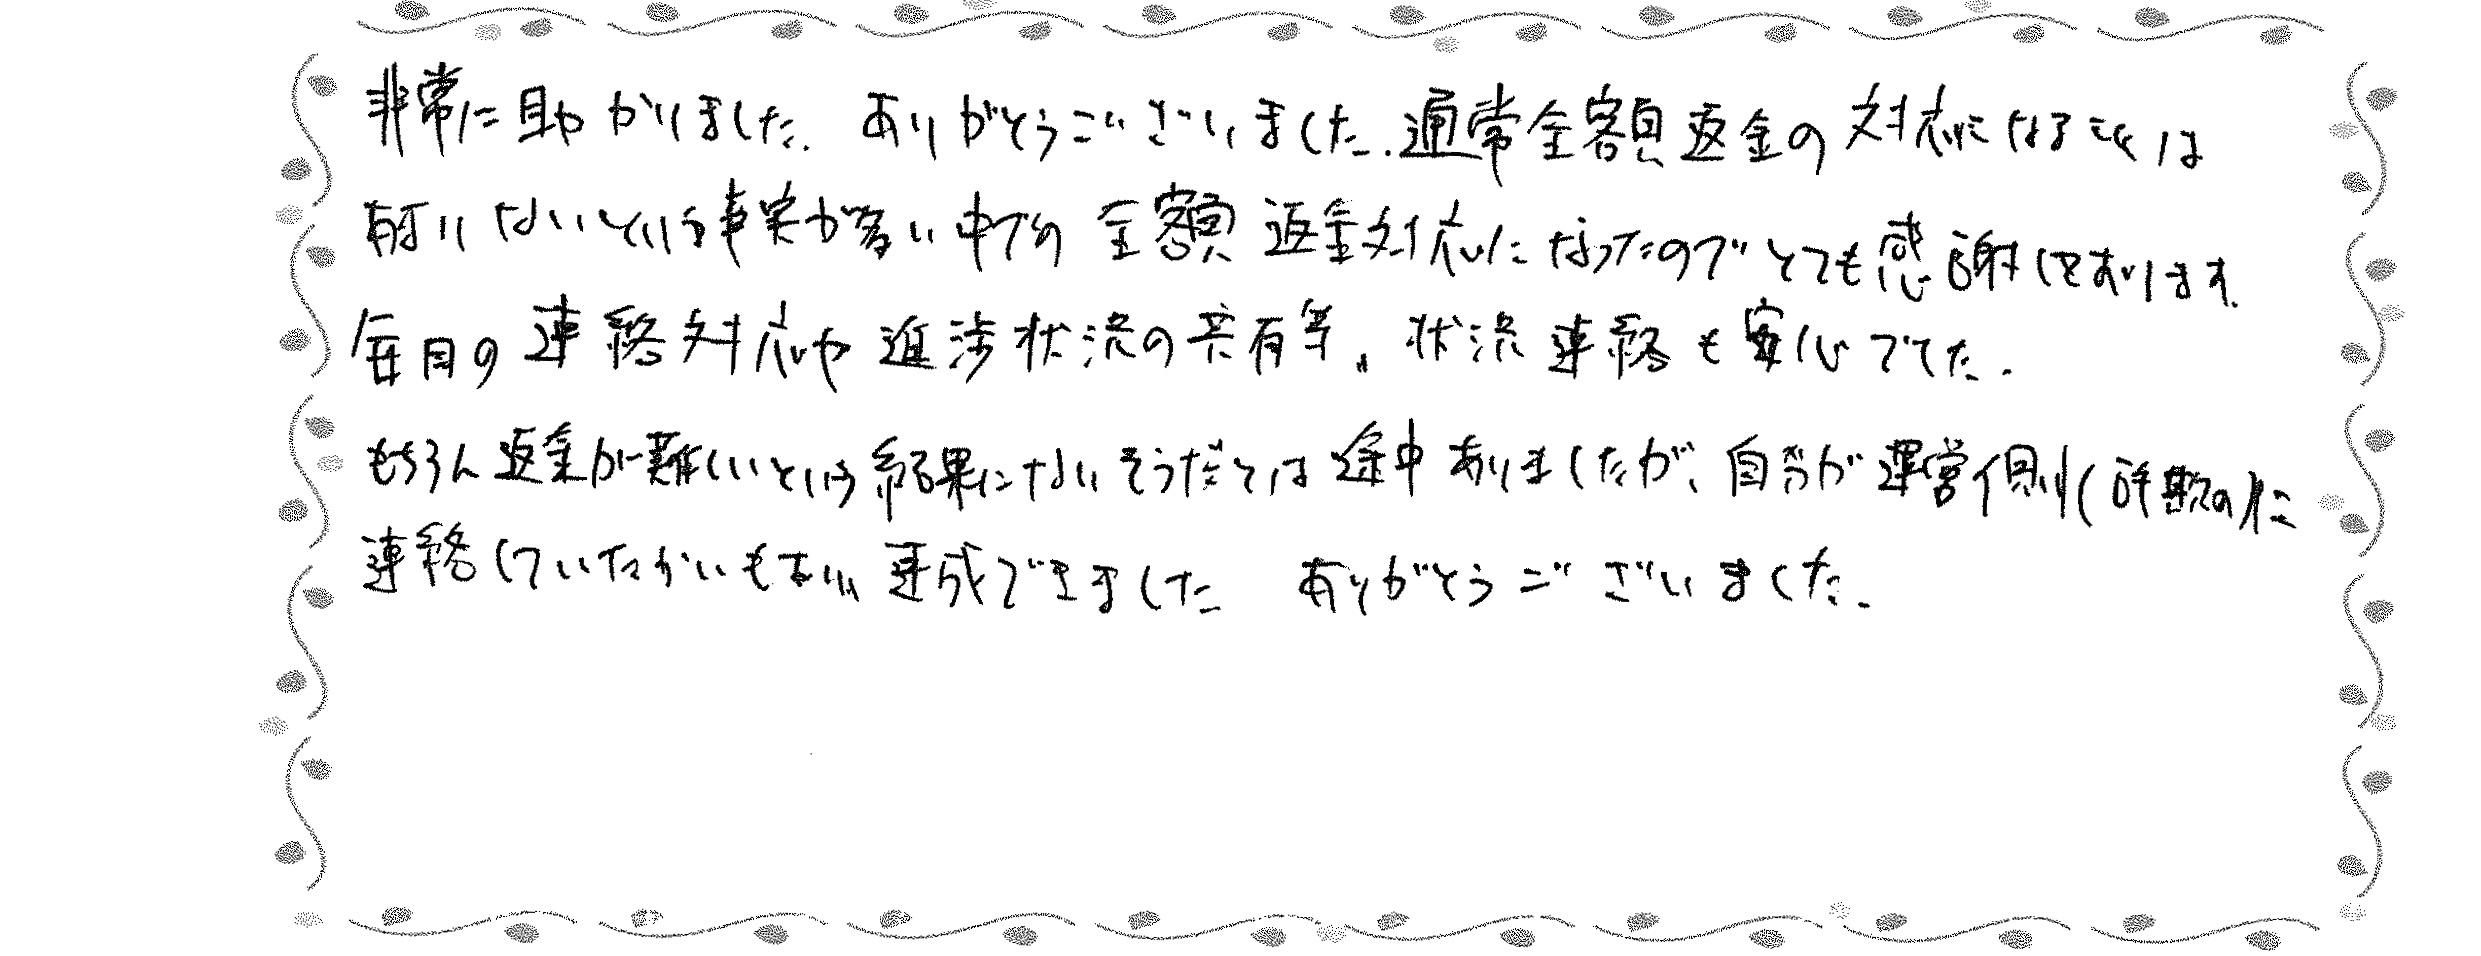 非常に助かりました. ありがとうございました. 通常全額返金の対応になることは
有りえないという事実が多い中での全額返金対応になったのでとても感謝しております.
毎日の連絡対応や進渉状況の共有等、状況連絡も安心でてた.
もちろん返金が難しいという結果になりそうだとは途中ありましたが、自分が運営側(詐欺の)に
連絡していたかいもあい達成できました ありがとうございました.